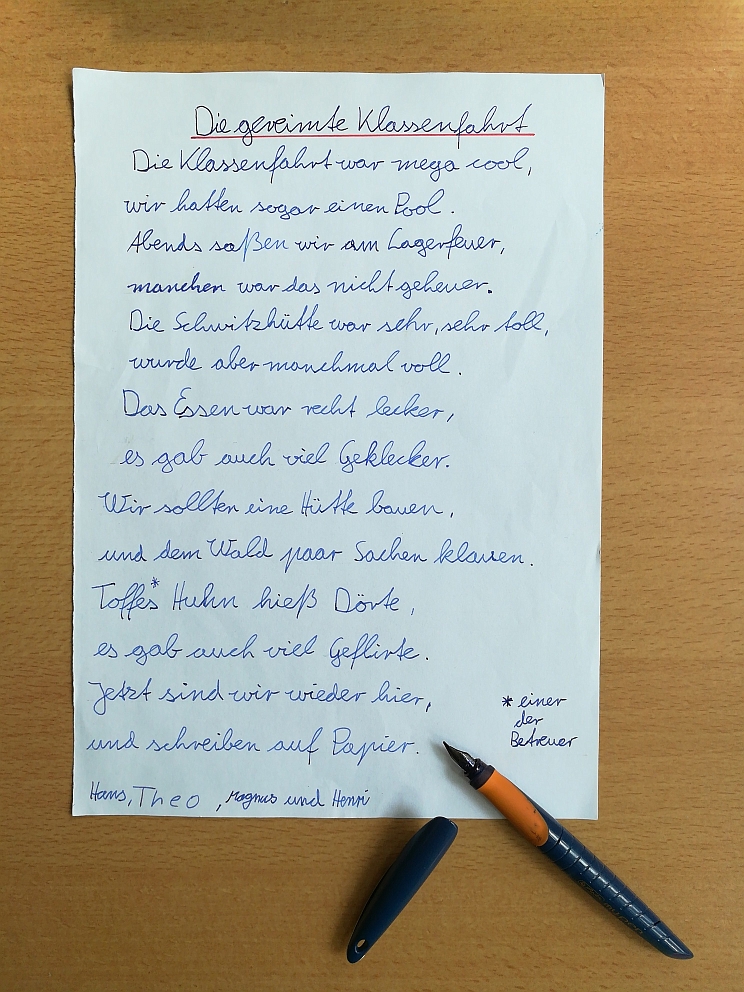 Die gereimte Klassenfahrt
Die Klassenfahrt war mega cool,
wir hatten sogar einen Pool.
Abends saßen wir am Lagerfeuer,
manchen war das nicht geheuer.
Die Schwitzhütte war sehr, sehr toll,
wurde aber manchmal voll.
Das Essen war recht lecker,
es gab auch viel Geklecker.
Wir sollten eine Hütte bauen,
und dem Wald paar Sachen klauen.
Toffes* Huhn hieß Dörte,
es gab auch viel Geflirte.
Jetzt sind wir wieder hier,
und schreiben auf Papier.
* einer
der
Betreuer
Hans, Theo, Magnus und Henri